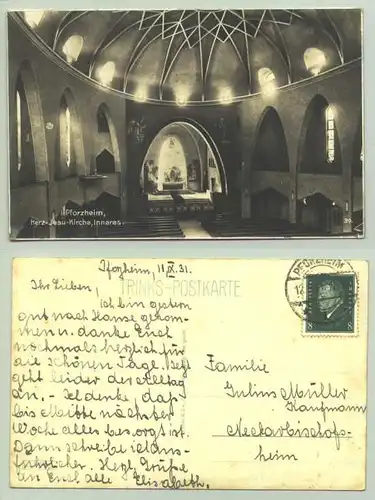 Pforzheim,
Herz-Jesu-Kirche, Inneres.
Pforzheim, 11.IX.31.
TRINKS-POSTKARTE
Ihr Lieben,
ich bin gestern
gut nach Hause gekom-
men u. danke Euch
nochmals herzlich für
die schönen Tage. Jetzt
geht leider der Alltag
an. - Ich denke, daß
bis Mitte nächster
Woche alles besorgt ist.
Dann schreibe ich aus-
führlicher. Herzl. Grüße
an Euch alle Elisabeth.
PFORZHEIM
12
8 8
Familie
Julius Müller
Kaufmann
Neckarbischofs-
heim